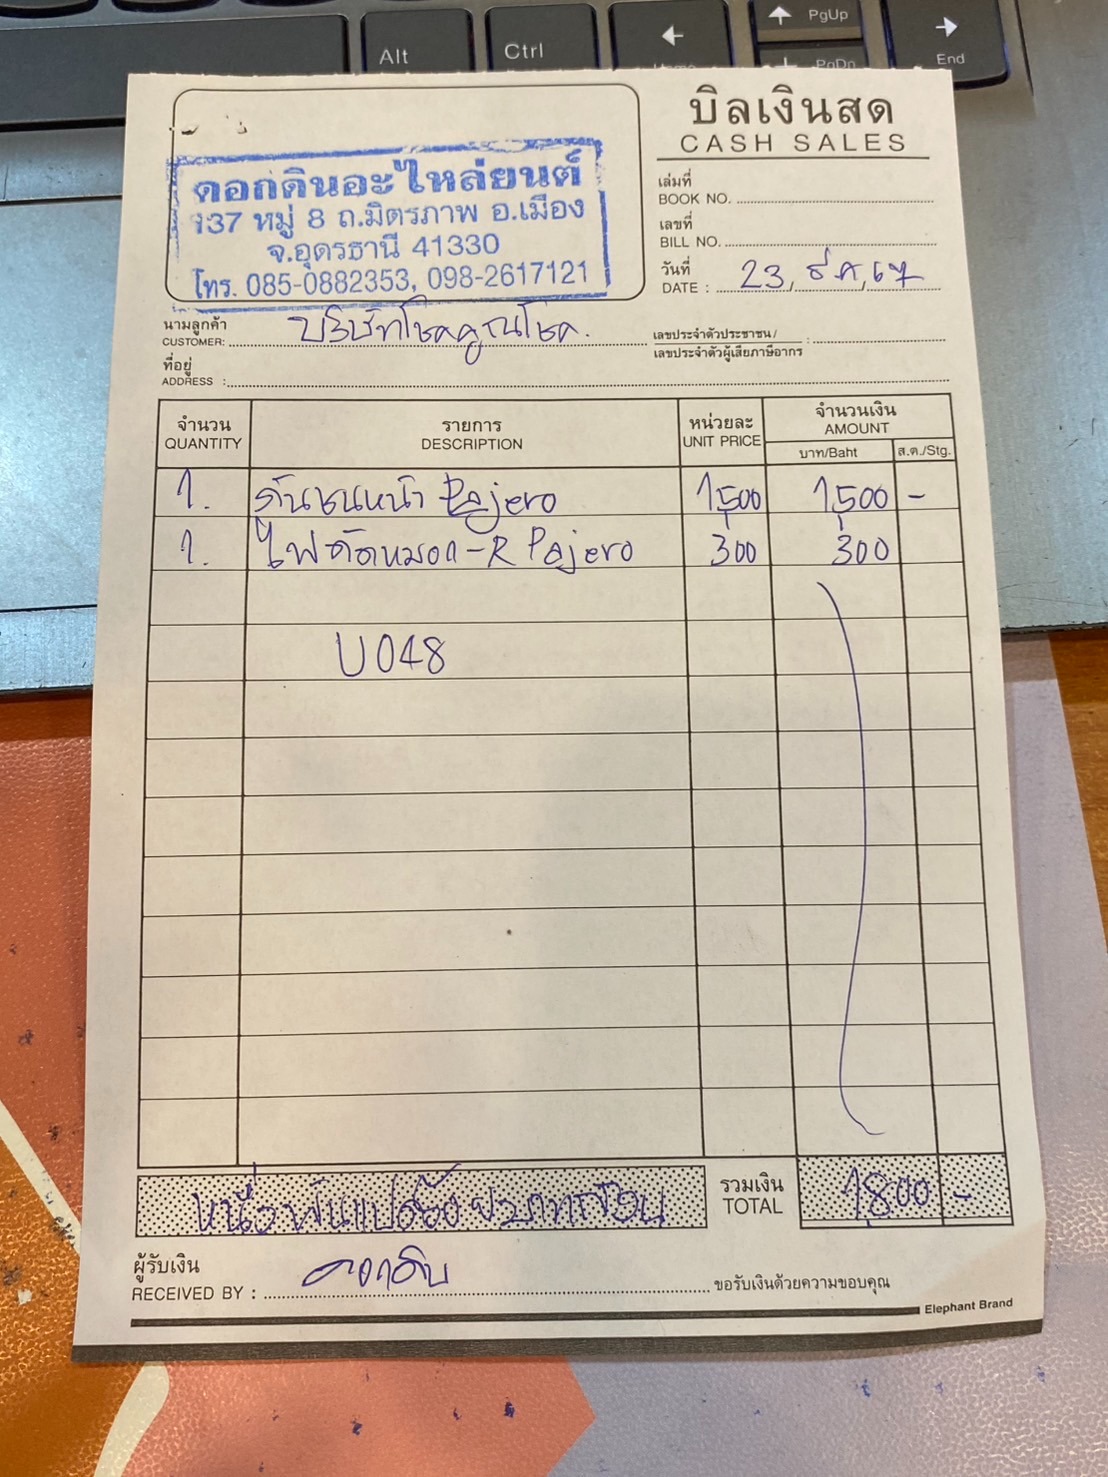 Alt
Ctrl
PgUp
PgDn
End
บิลเงินสด
CASH SALES
ดอกดินอะไหล่ยนต์
137 หมู่ 8 ถ.มิตรภาพ อ.เมือง
จ.อุดรธานี 41330
โทร. 085-0882353, 098-2617121
เล่มที่
BOOK NO.
เลขที่
BILL NO.
วันที่
DATE : 23, ธ.ค, 67
นามลูกค้า
CUSTOMER: บริษัทโชคคูณโชค.
เลขประจำตัวประชาชน /
เลขประจำตัวผู้เสียภาษีอากร :
ที่อยู่
ADDRESS :
จำนวน รายการ หน่วยละ จำนวนเงิน
QUANTITY DESCRIPTION UNIT PRICE AMOUNT
บาท/Baht ส.ต./Stg.
1. กันชนหน้า Pajero 1,500 1,500 -
1. ไฟตัดหมอก-R Pajero 300 300
U048
หนึ่งพันแปดร้อยบาทถ้วน รวมเงิน 1,800 -
TOTAL
ผู้รับเงิน
RECEIVED BY : ดอกดิน ขอรับเงินด้วยความขอบคุณ
Elephant Brand